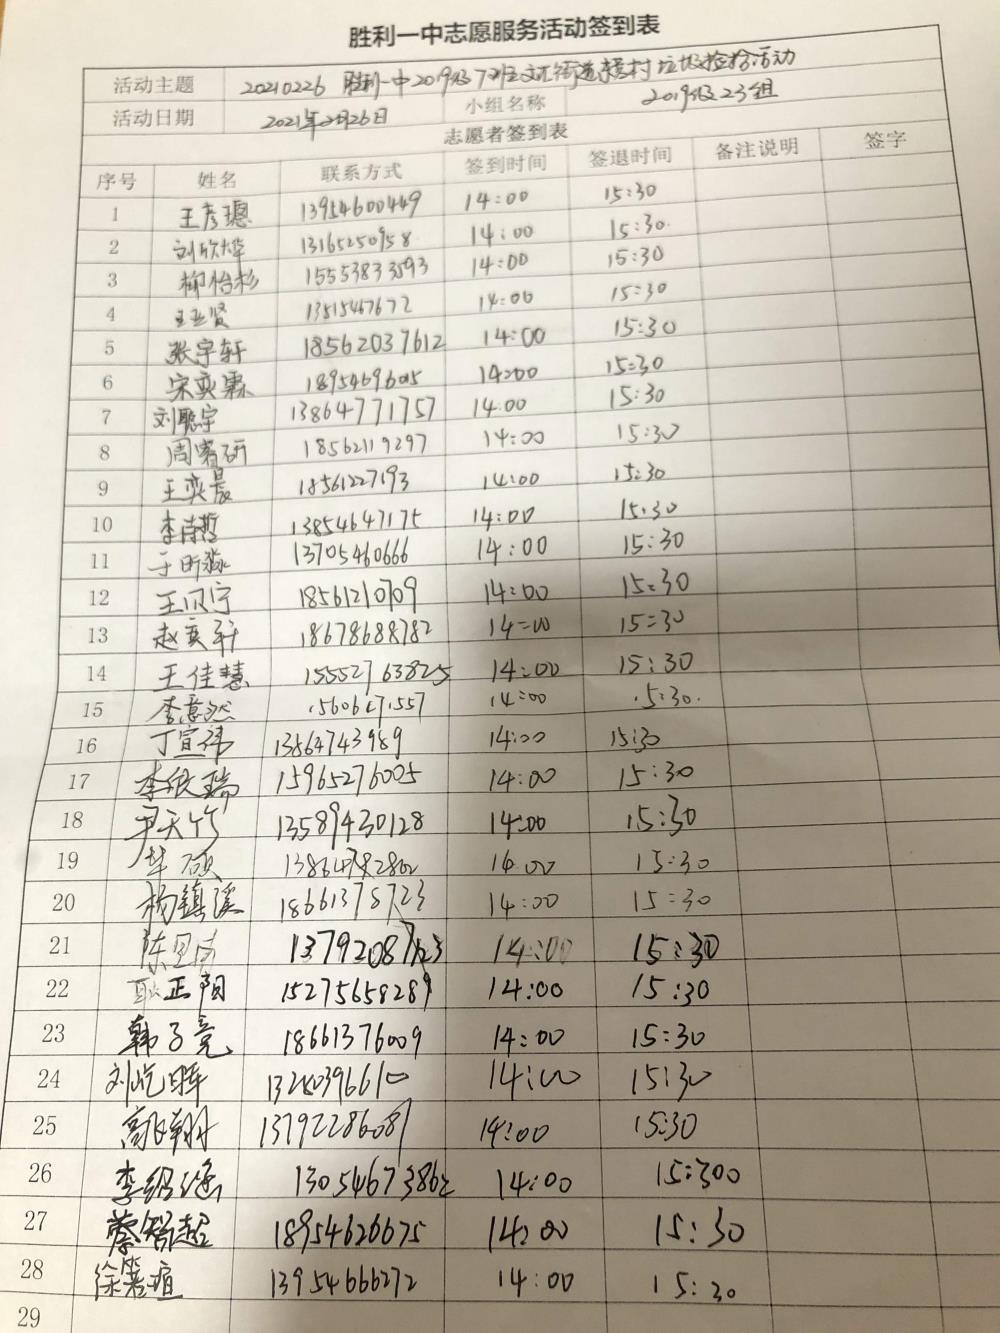 胜利一中志愿服务活动签到表
活动主题 20210226 胜利一中2019级7班文汇街道 村垃圾捡拾活动
活动日期 2021年2月26日 小组名称 2019级23组
志愿者签到表
序号 姓名 联系方式 签到时间 签退时间 备注说明 签字
1 王彦璁 13954600449 14:00 15:30
2 刘欣烨 13165250958 14:00 15:30
3 柳怡杉 15553833593 14:00 15:30
4 王益贤 13515467672 14:00 15:30
5 张宇轩 18562037612 14:00 15:30
6 宋奕霖 18954696015 14:00 15:30
7 刘聪宇 13864771757 14:00 15:30
8 周睿研 18562119297 14:00 15:30
9 王奕晨 18561227193 14:00 15:30
10 李诗哲 13854647175 14:00 15:30
11 于昕淼 13705460666 14:00 15:30
12 王贝宁 18561210709 14:00 15:30
13 赵奕轩 18678688782 14:00 15:30
14 王佳慧 15552763825 14:00 15:30
15 李意然 15606271557 14:00 15:30
16 丁宣祎 13564743989 14:00 15:30
17 李欣瑞 15965276005 14:00 15:30
18 尹天竹 13589430128 14:00 15:30
19 14:00 15:30
20 杨镇溪 18661375723 14:00 15:30
21 14:00 15:30
22 耿正阳 15275658289 14:00 15:30
23 韩子亮 18661376009 14:00 15:30
24 刘屹晖 13280396610 14:00 15:30
25 高飞翔 13792286081 14:00 15:30
26 李绍涵 13054673862 14:00 15:300
27 蔡智超 18954626675 14:00 15:30
28 徐箬瑄 13954666272 14:00 15:30
29